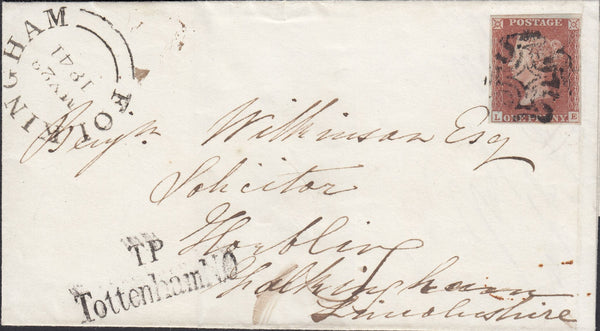 FOLKINGHAM
NY29
1841
POSTAGE
ONE PENNY
L E
Benjn. Wilkinson Esq
Solicitor
Horbling
Falkingham
Lincolnshire
TP
Tottenham NO